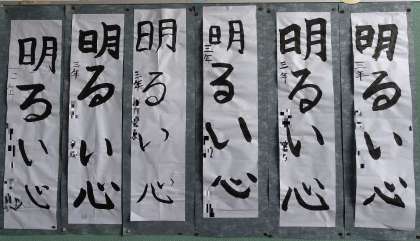 明るい心
三年
明るい心
三年
明るい心
三年
明るい心
三年
明るい心
三年
明るい心